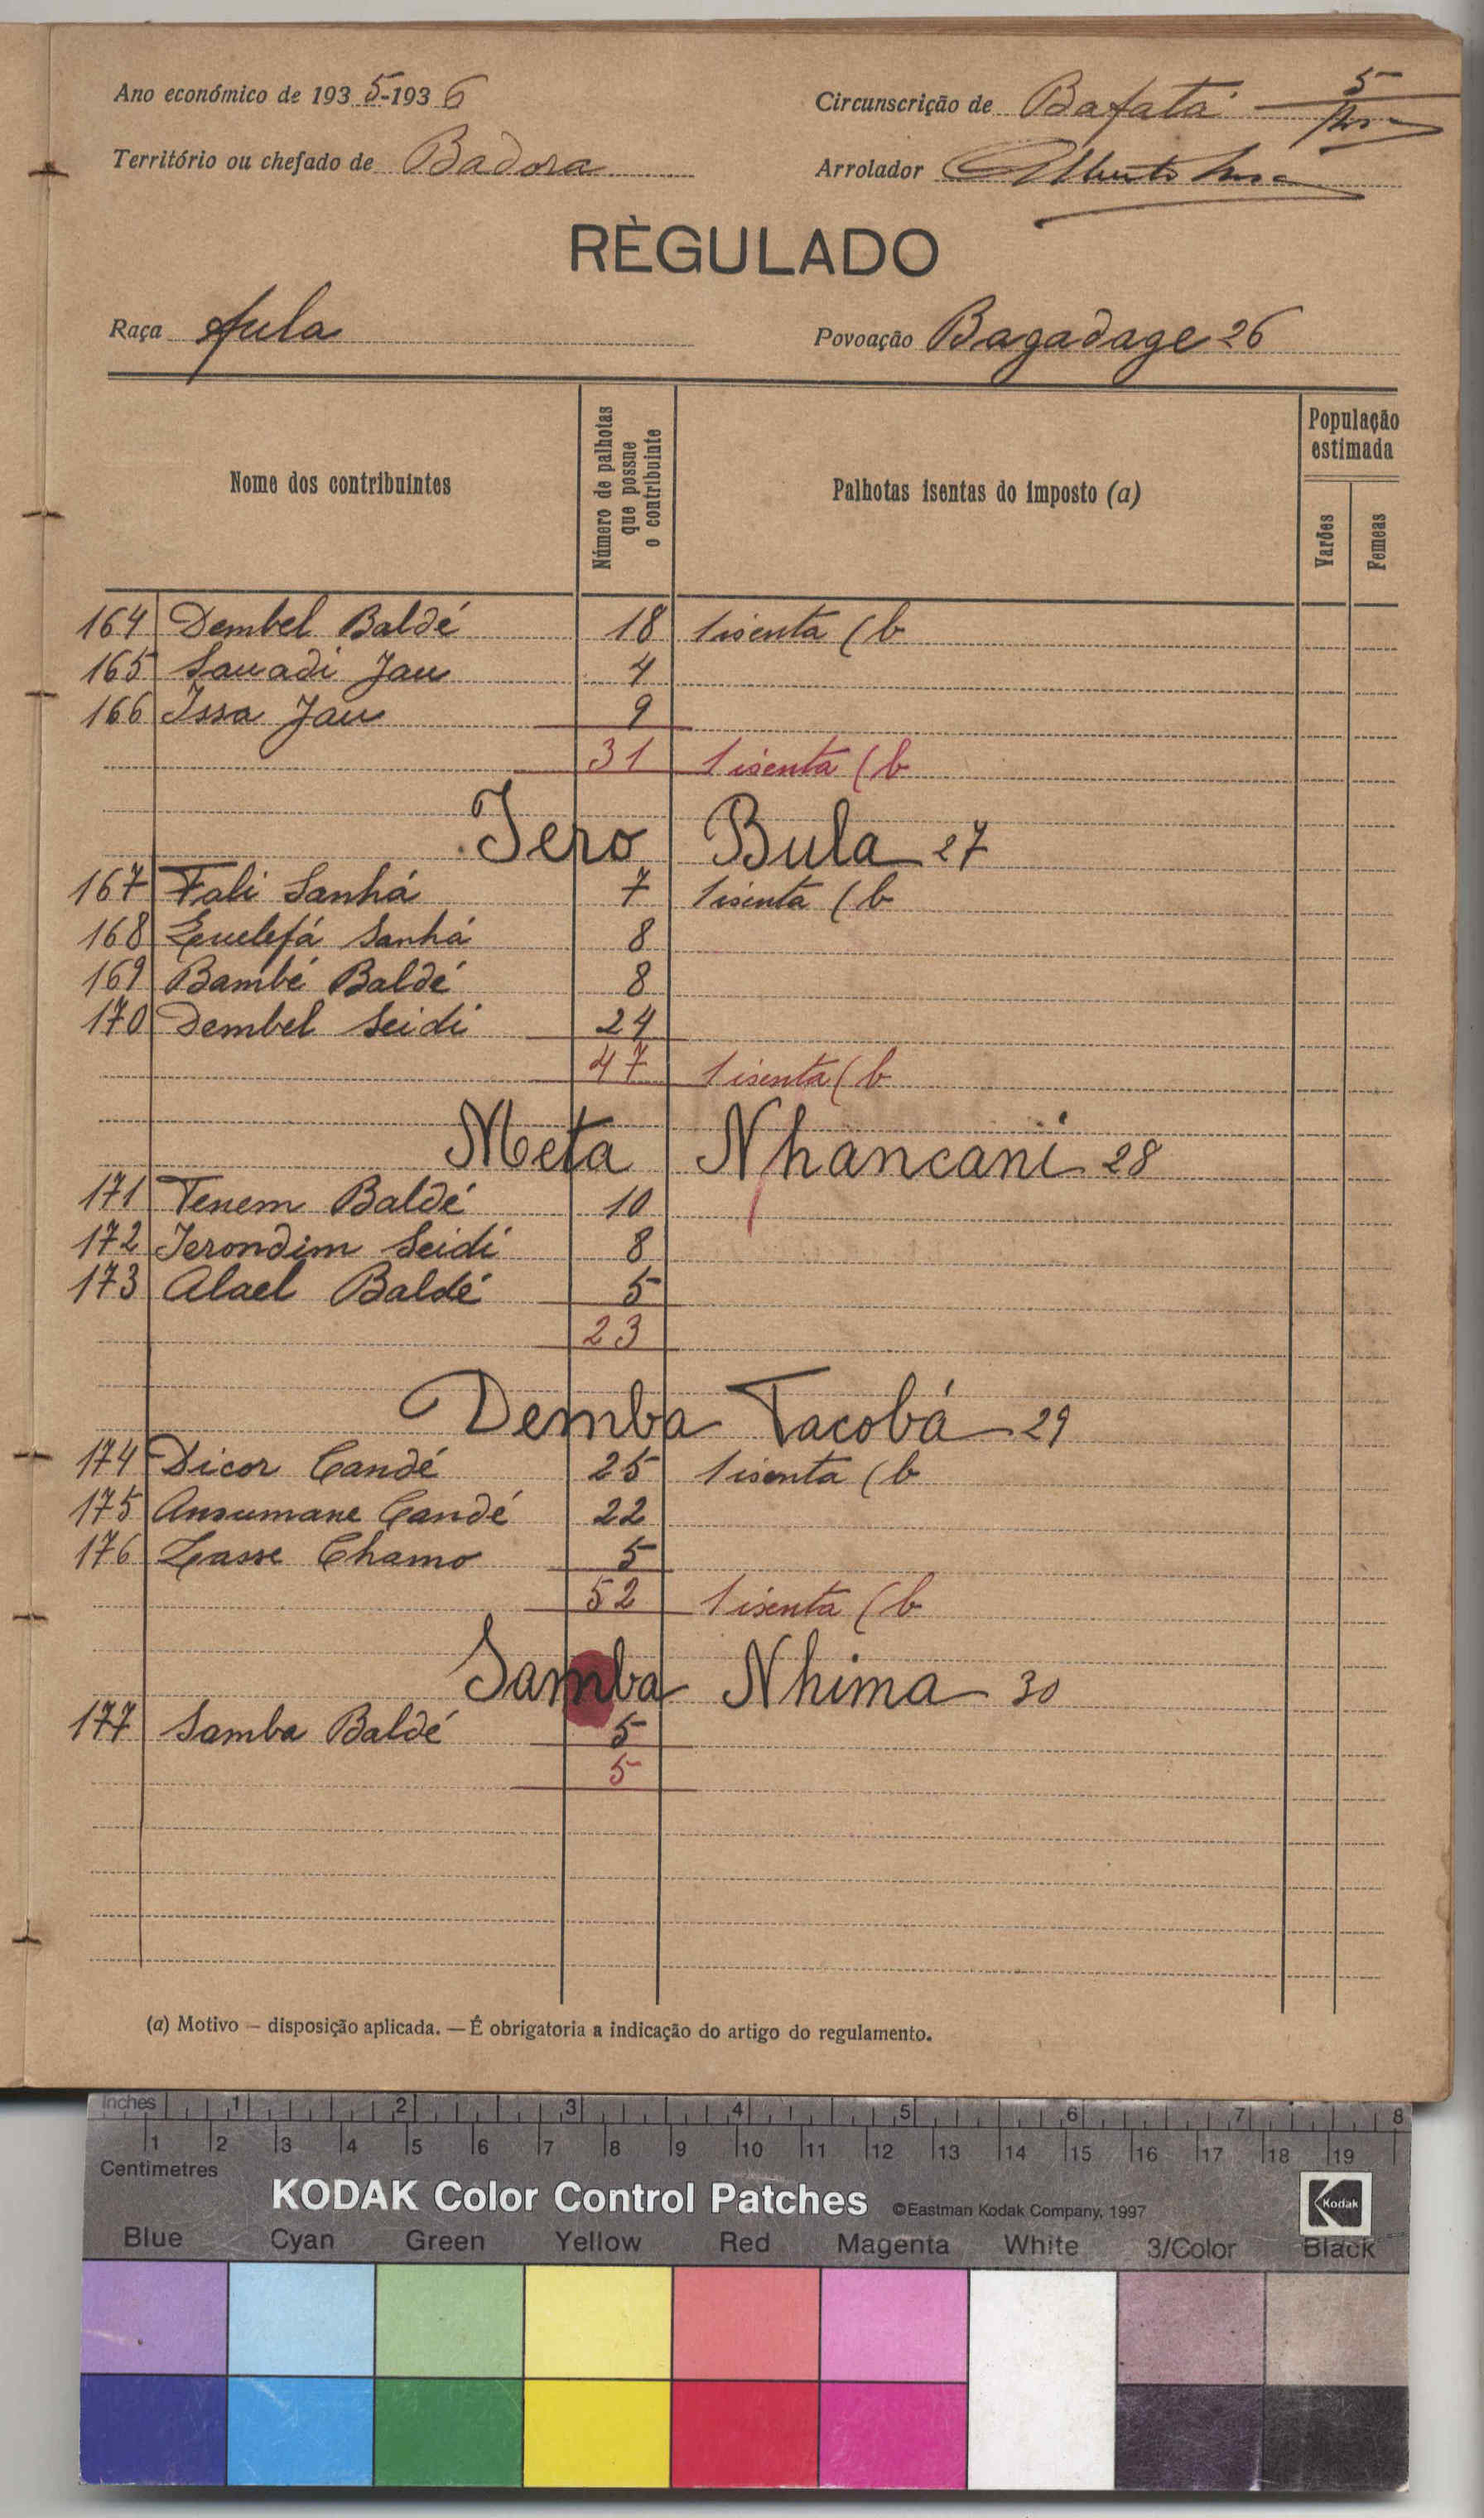 Ano económico de 1935-1936
Circunscrição de Bafatá 5
Território ou chefado de Badora
Arrolador Alberto
RÈGULADO
Raça fula
Povoação Bagadage 26
Nome dos contribuintes
Número de palhotas que possue o contribuinte
Palhotas isentas do imposto (a)
População estimada
Varões
Femeas
164 Dembel Baldé 18 1 isenta (b
165 Sauadi Jau 4
166 Issa Jau 9
31 1 isenta (b
Jero Bula 27
167 Fali Sanhá 7 1 isenta (b
168 Quelefá Sanhá 8
169 Bambé Baldé 8
170 Dembel Seidi 24
47 1 isenta (b
Meta Nhancani 28
171 Tenem Baldé 10
172 Jerondim Seidi 8
173 Alael Baldé 5
23
Demba Tacobá 29
174 Dicor Candé 25 1 isenta (b
175 Ansumane Candé 22
176 Lasse Chamo 5
52 1 isenta (b
Samba Nhima 30
177 Samba Baldé 5
5
(a) Motivo — disposição aplicada. — É obrigatoria a indicação do artigo do regulamento.
Inches 1 2 3 4 5 6 7 8
1 2 3 4 5 6 7 8 9 10 11 12 13 14 15 16 17 18 19
Centimetres
KODAK Color Control Patches ©Eastman Kodak Company, 1997 Kodak
Blue Cyan Green Yellow Red Magenta White 3/Color Black